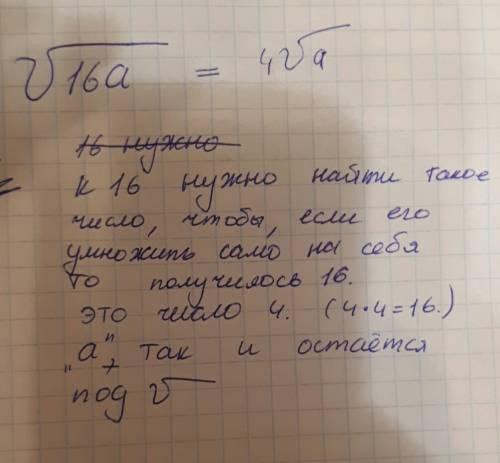 √16a = 4√a
16 нужно
к 16 нужно найти такое
число, чтобы, если его
умножить само на себя
то получилось 16.
это число 4. (4·4=16.)
"a" так и остаётся
под √